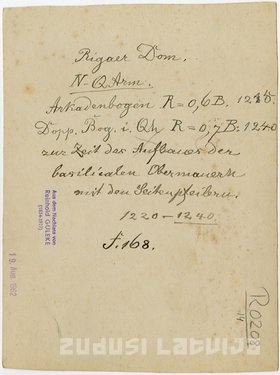 Rigaer Dom.
N-Q Arm.
Arkadenbogen R=0,6B. 1215
Dopp. Bog. i. Qh R=0,7B: 1240
zur Zeit des Aufbaues der
basilicalen Obermauern
mit den Seitenpfeilern.
1220-1240.
F. 168.
Aus dem Nachlass von
Reinhold GULEKE
(1834-1917)
19 Aug. 1962
R0208
14
ZUDUSI LATVIJA